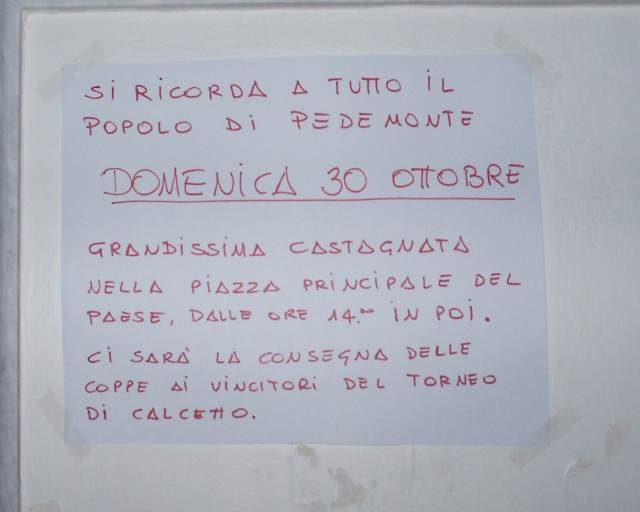 Si RiCORDA A TUTTO iL
POPOLO Di PEDEMONTE
DOMENiCA 30 OTTOBRE
GRANDiSSiMA CASTAGNATA
NELLA PiAZZA PRiNCiPALE DEL
PAESE, DALLE ORE 14.00 iN POi.
Ci SARÀ LA CONSEGNA DELLE
COPPE Ai ViNCiTORi DEL TORNEO
Di CALCETTO.